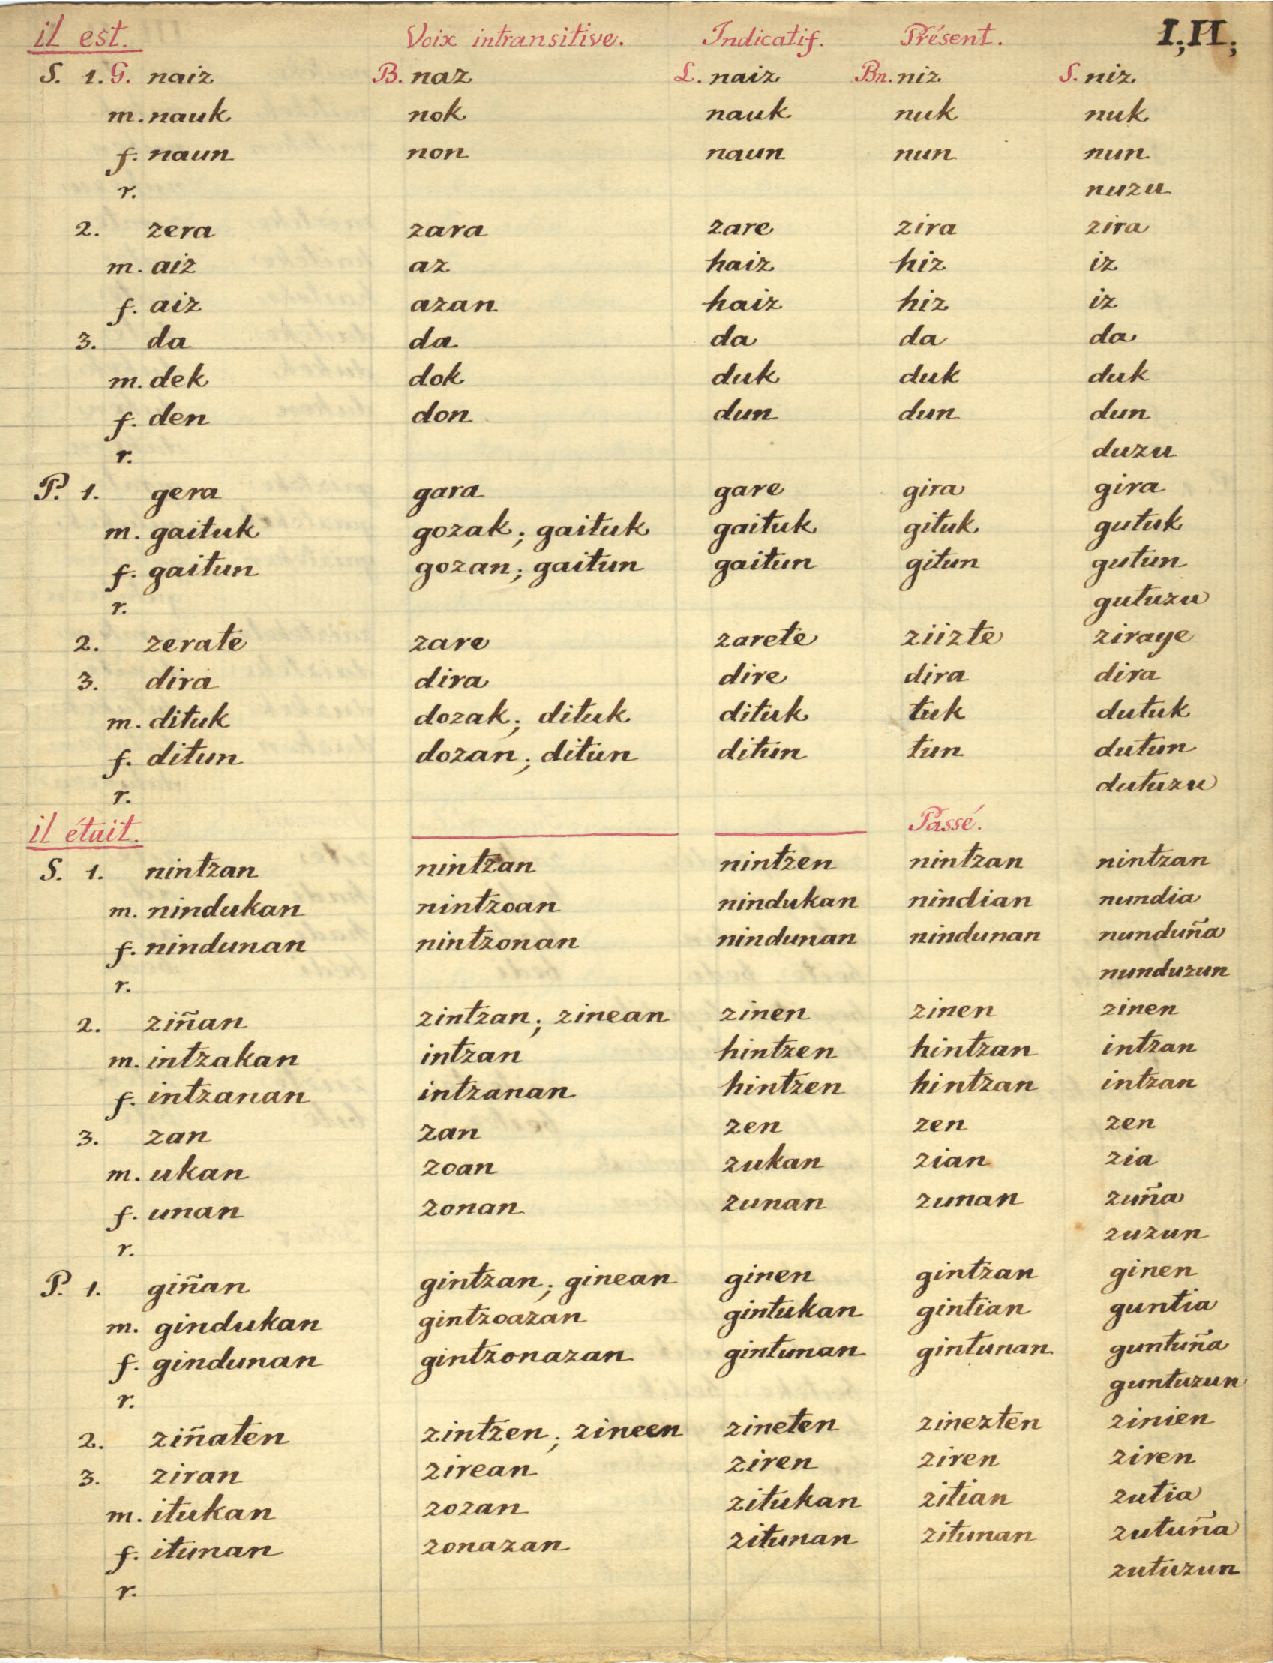 il est. Voix intransitive. Indicatif. Présent. I, II;
S. 1. G. naiz B. naz L. naiz Bn. niz S. niz
m. nauk nok nauk nuk nuk
f. naun non naun nun nun
r. nuzu
2. zera zara zare zira zira
m. aiz az haiz hiz iz
f. aiz azan haiz hiz iz
3. da da da da da
m. dek dok duk duk duk
f. den don dun dun dun
r. duzu
P. 1. gera gara gare gira gira
m. gaituk gozak; gaituk gaituk gituk gutuk
f. gaitun gozan; gaitun gaitun gitun gutun
r. gutuzu
2. zerate zare zarete ziizte ziraye
3. dira dira dire dira dira
m. dituk dozak; dituk dituk tuk dutuk
f. ditun dozan; ditun ditun tun dutun
r. dutuzu
il était. Passé.
S. 1. nintzan nintzan nintzen nintzan nintzan
m. nindukan nintzoan nindukan nindian nundia
f. nindunan nintzonan nindunan nindunan nunduña
r. nunduzun
2. ziñan zintzan; zinean zinen zinen zinen
m. intzakan intzan hintzen hintzan intzan
f. intzanan intzanan hintzen hintzan intzan
3. zan zan zen zen zen
m. ukan zoan zukan zian zia
f. unan zonan zunan zunan zuña
r. zuzun
P. 1. giñan gintzan; ginean ginen gintzan ginen
m. gindukan gintzoazan gintukan gintian guntia
f. gindunan gintzonazan gintunan gintunan guntuña
r. guntuzun
2. ziñaten zintzen; zineen zineten zinezten zinien
3. ziran zirean ziren ziren ziren
m. itukan zozan zitukan zitian zutia
f. itunan zonazan zitunan zitunan zutuña
r. zutuzun